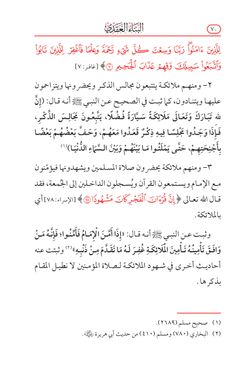 ٧٠
البناء العقدي
لِلَّذِينَ ءَامَنُوا۟ رَبَّنَا وَسِعْتَ كُلَّ شَىْءٍ رَّحْمَةً وَعِلْمًا فَٱغْفِرْ لِلَّذِينَ تَابُوا۟
وَٱتَّبَعُوا۟ سَبِيلَكَ وَقِهِمْ عَذَابَ ٱلْجَحِيمِ ٧﴾ [غافر: ٧]
٢- ومنهم ملائكة يتتبعون مجالس الذكر ويحضرونها ويتزاحمون
عليها ويتنادون، كما ثبت في الصحيح عن النبي ﷺ أنه قال: (إِنَّ
لله تَبَارَكَ وَتَعَالَى مَلَائِكَةً سَيَّارَةً فُضُلًا، يَتَّبِعُونَ مَجَالِسَ الذِّكْرِ،
فَإِذَا وَجَدُوا مَجْلِسًا فِيهِ ذِكْرٌ قَعَدُوا مَعَهُمْ، وَحَفَّ بَعْضُهُمْ بَعْضًا
بِأَجْنِحَتِهِمْ، حَتَّى يَمْلَئُوا مَا بَيْنَهُمْ وَبَيْنَ السَّمَاءِ الدُّنْيَا)(١)
٣- ومنهم ملائكة يحضرون صلاة المسلمين ويشهدونها فيؤمّنون
مع الإمام ويستمعون القرآن ويُسجلون الداخلين إلى الجمعة، فقد
قال الله تعالى ﴿إِنَّ قُرْءَانَ ٱلْفَجْرِ كَانَ مَشْهُودًا ٧٨﴾ [الإسراء: ٧٨] أي
بالملائكة.
وثبت عن النبي ﷺ أنه قال: (إِذَا أَمَّنَ الْإِمَامُ فَأَمِّنُوا؛ فَإِنَّهُ مَنْ
وَافَقَ تَأْمِينُهُ تَأْمِينَ الْمَلَائِكَةِ غُفِرَ لَهُ مَا تَقَدَّمَ مِنْ ذَنْبِهِ)(٢) وثبتت عنه
أحاديث أخرى في شهود الملائكة لصلاة المؤمنين لا نطيل المقام
بذكرها.
(١) صحيح مسلم (٢٦٨٩).
(٢) البخاري (٧٨٠) ومسلم (٤١٠) من حديث أبي هريرة